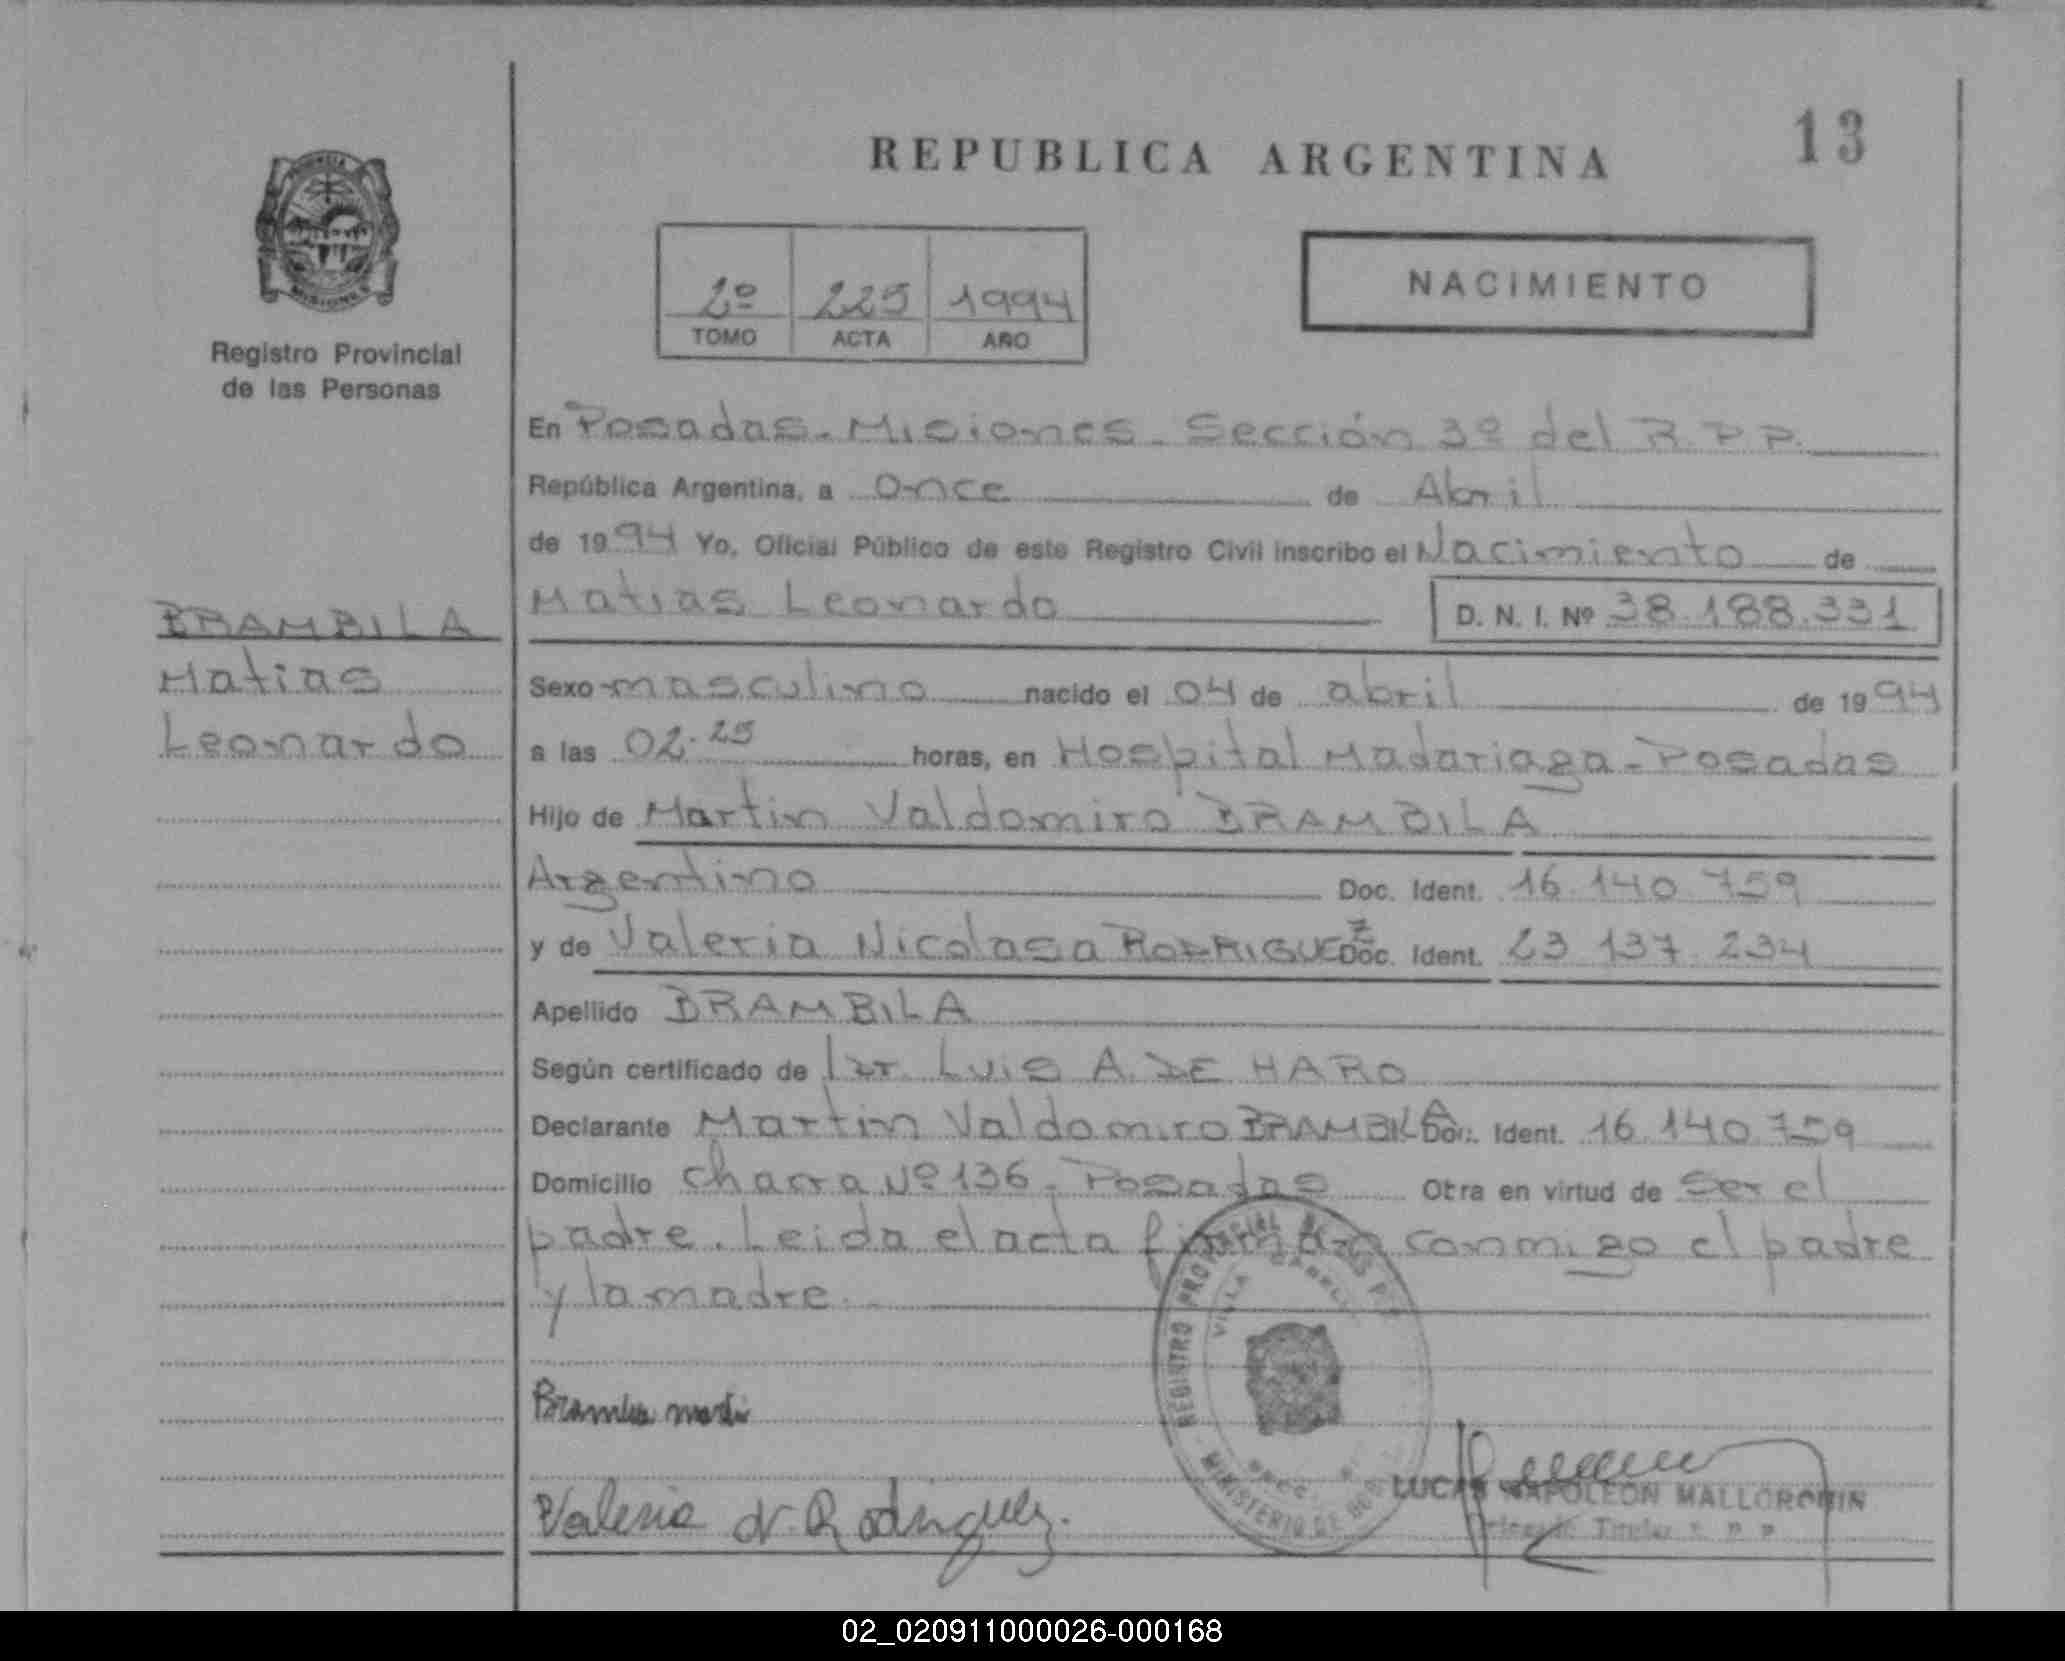 REPUBLICA ARGENTINA
13
MISIONES
Registro Provincial
de las Personas
2º 225 1994
TOMO ACTA AÑO
NACIMIENTO
En Posadas - Misiones - Sección 3º del R.P.P.
República Argentina, a once de Abril
de 1994 Yo, Oficial Público de este Registro Civil inscribo el Nacimiento de
Matias Leonardo D. N. I. Nº 38.188.331
BRAMBILA
Matias
Leonardo
Sexo masculino nacido el 04 de abril de 1994
a las 02.25 horas, en Hospital Madariaga - Posadas
Hijo de Martin Valdomiro BRAMBILA
Argentino Doc. Ident. 16.140.759
y de Valeria Nicolasa RODRIGUEZ Doc. Ident. 23.137.234
Apellido BRAMBILA
Según certificado de Dr. Luis A. DE HARO
Declarante Martin Valdomiro BRAMBILA Doc. Ident. 16.140.759
Domicilio Chacra Nº 136 - Posadas Otra en virtud de Ser el
padre. Leida el acta firman conmigo el padre
y la madre.
REGISTRO PROVINCIAL DE LAS P.
VILLA CABELL
MINISTERIO DE GOB
Valeria N. Rodriguez.
LUCAS NAPOLEON MALLORQUIN
Titular R. P. P.
02_020911000026-000168